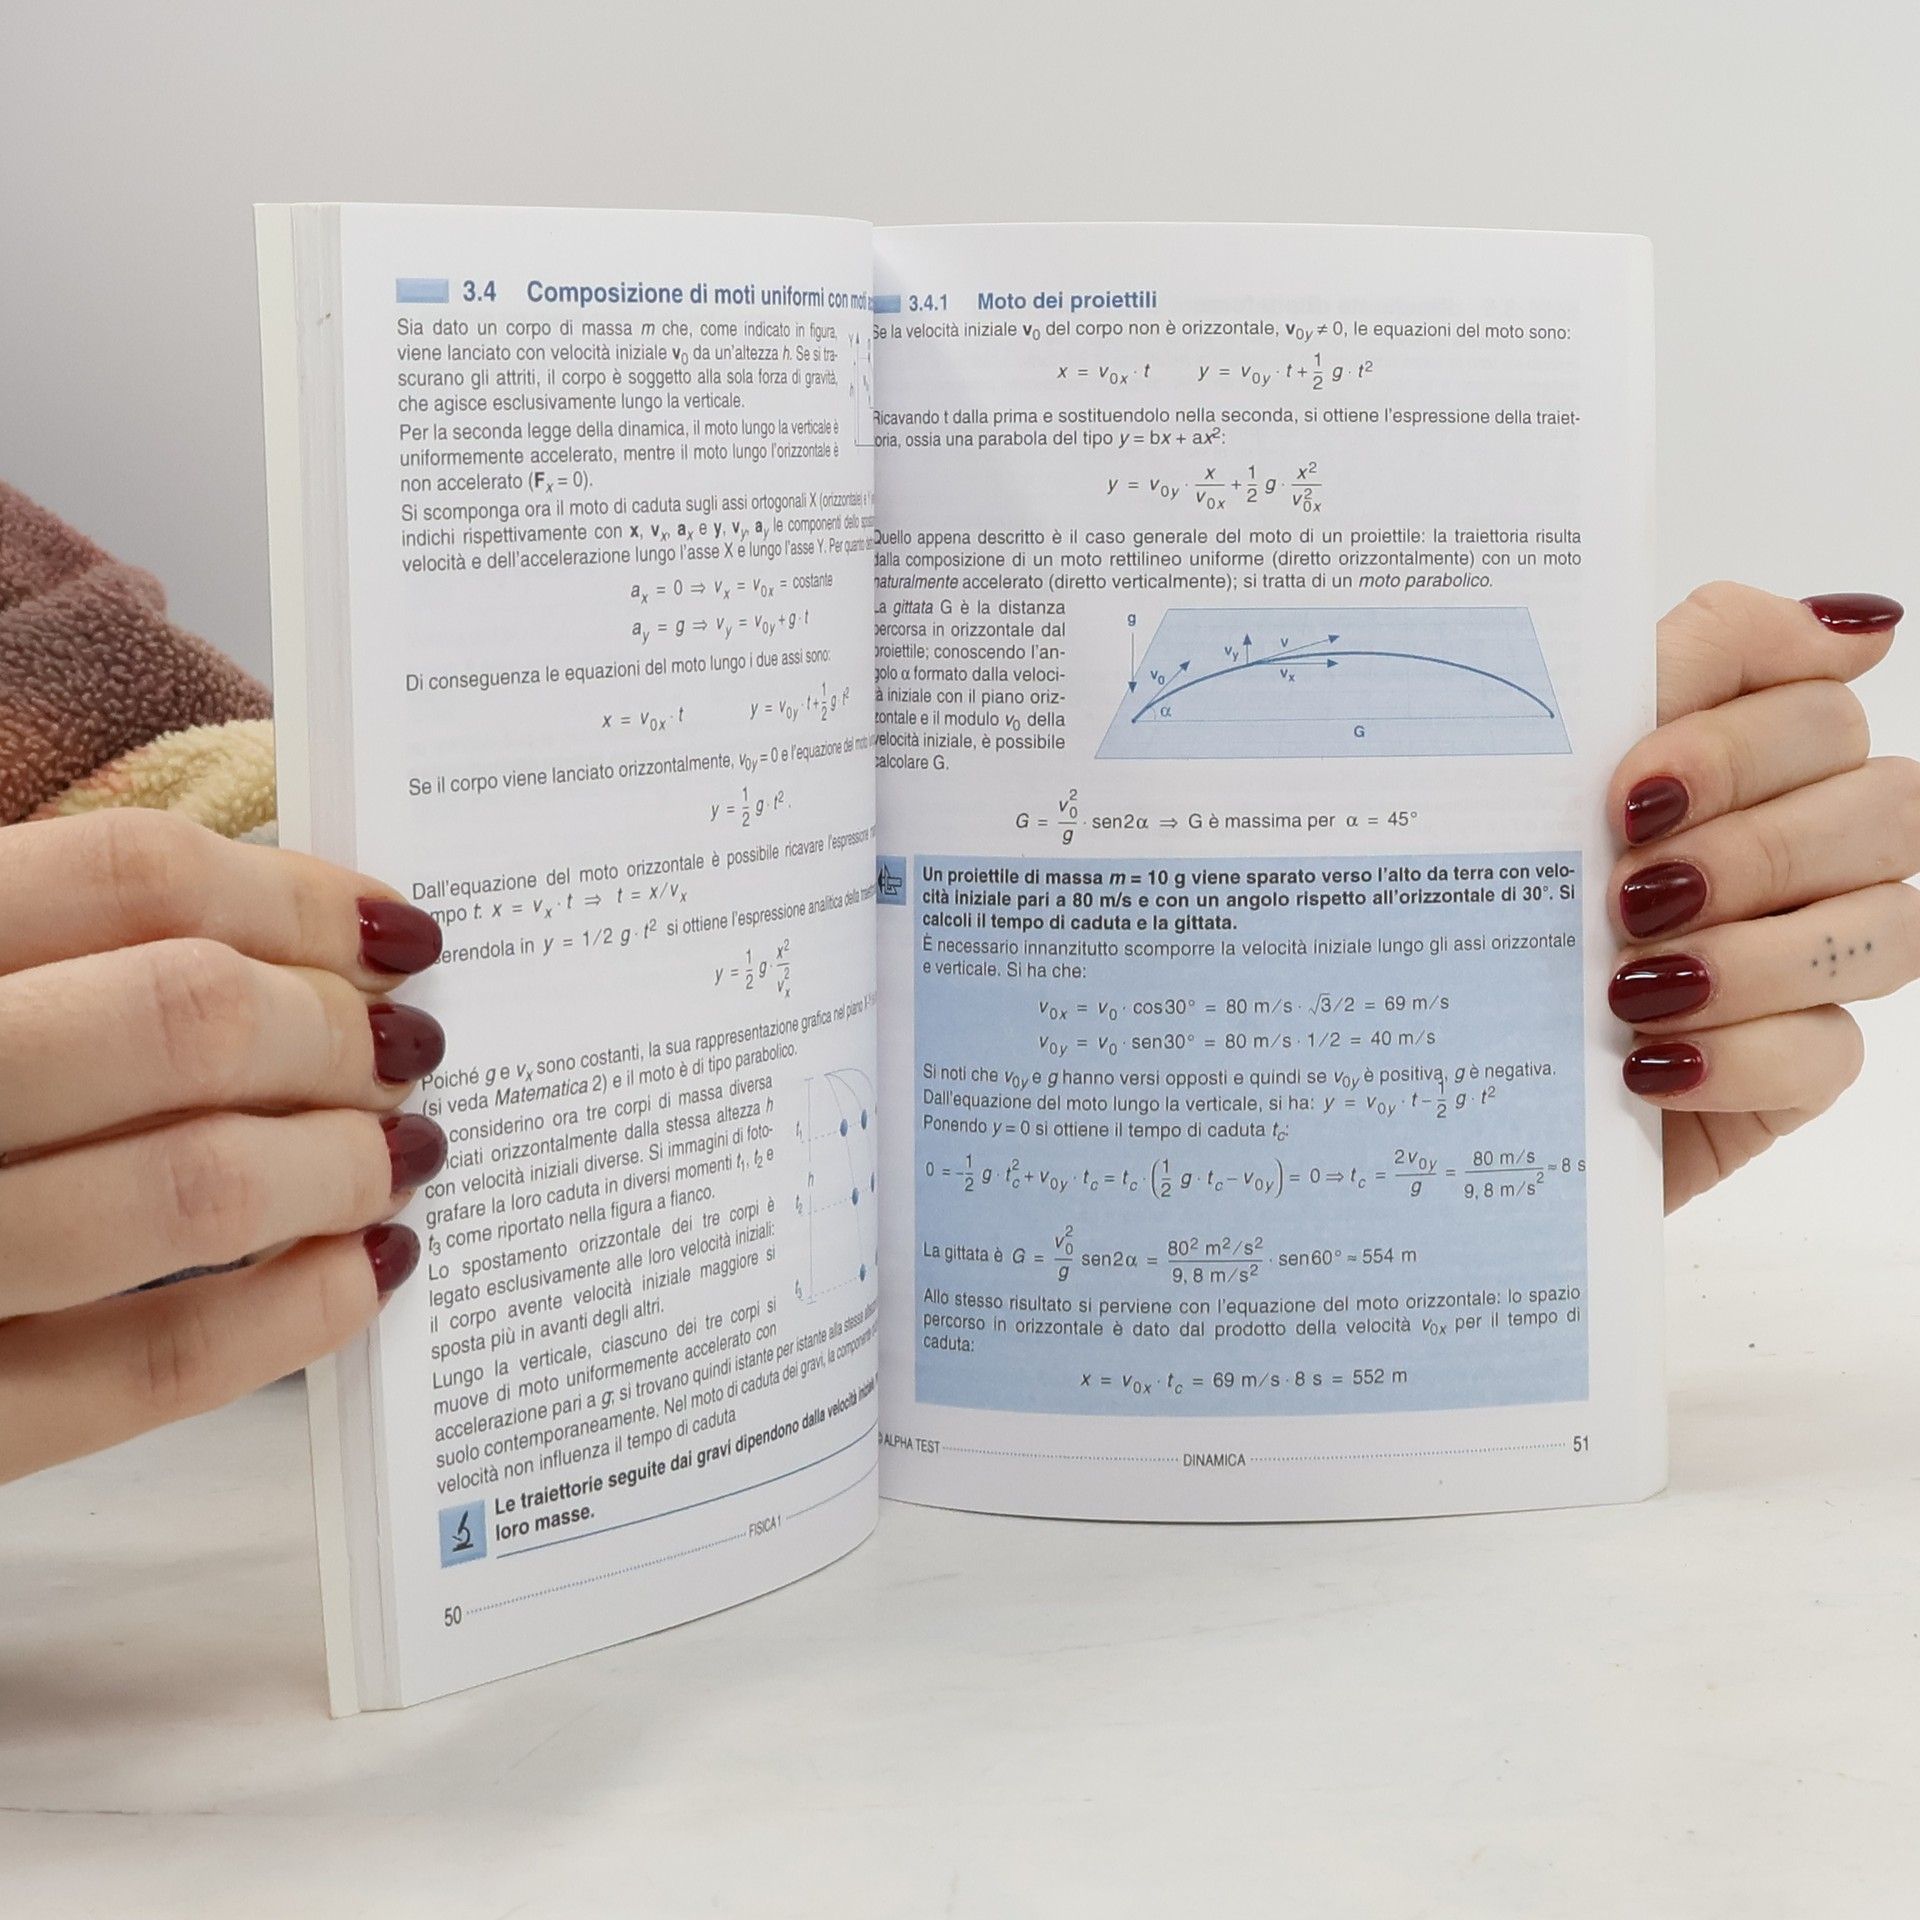 3.4 Composizione di moti uniformi con moti
Sia dato un corpo di massa m che, come indicato in figura,
viene lanciato con velocità iniziale v₀ da un'altezza h. Se si tra-
scurano gli attriti, il corpo è soggetto alla sola forza di gravità,
che agisce esclusivamente lungo la verticale.
Per la seconda legge della dinamica, il moto lungo la verticale è
uniformemente accelerato, mentre il moto lungo l'orizzontale è
non accelerato (Fₓ = 0).
Si scomponga ora il moto di caduta sugli assi ortogonali X (orizzontale) e
indichi rispettivamente con x, vₓ, aₓ e y, v_y, a_y le componenti dello
velocità e dell'accelerazione lungo l'asse X e lungo l'asse Y. Per quanto
aₓ = 0 ⇒ vₓ = v₀ₓ = costante
a_y = g ⇒ v_y = v₀y + g · t
Di conseguenza le equazioni del moto lungo i due assi sono:
x = v₀ₓ · t y = v₀y · t + 1/2 g · t²
Se il corpo viene lanciato orizzontalmente, v₀y = 0 e l'equazione del moto
y = 1/2 g · t².
Dall'equazione del moto orizzontale è possibile ricavare l'espressione
mpo t: x = vₓ · t ⇒ t = x/vₓ
erendola in y = 1/2 g · t² si ottiene l'espressione analitica della
y = 1/2 g · x²/vₓ²
Poiché g e vₓ sono costanti, la sua rappresentazione grafica nel piano
(si veda Matematica 2) e il moto è di tipo parabolico.
considerino ora tre corpi di massa diversa
nciati orizzontalmente dalla stessa altezza h
con velocità iniziali diverse. Si immagini di foto-
grafare la loro caduta in diversi momenti t₁, t₂ e
t₃ come riportato nella figura a fianco.
Lo spostamento orizzontale dei tre corpi è
legato esclusivamente alle loro velocità iniziali:
il corpo avente velocità iniziale maggiore si
sposta più in avanti degli altri.
Lungo la verticale, ciascuno dei tre corpi si
muove di moto uniformemente accelerato con
accelerazione pari a g; si trovano quindi istante per istante alla stessa
suolo contemporaneamente. Nel moto di caduta dei gravi, la componente
velocità non influenza il tempo di caduta
t₁
h
t₂
t₃
Le traiettorie seguite dai gravi dipendono dalla velocità iniziale
loro masse.
FISICA 1
50
3.4.1 Moto dei proiettili
Se la velocità iniziale v₀ del corpo non è orizzontale, v₀y ≠ 0, le equazioni del moto sono:
x = v₀ₓ · t y = v₀y · t + 1/2 g · t²
Ricavando t dalla prima e sostituendolo nella seconda, si ottiene l'espressione della traiet-
oria, ossia una parabola del tipo y = bx + ax²:
y = v₀y · x/v₀ₓ + 1/2 g · x²/v₀ₓ²
Quello appena descritto è il caso generale del moto di un proiettile: la traiettoria risulta
dalla composizione di un moto rettilineo uniforme (diretto orizzontalmente) con un moto
naturalmente accelerato (diretto verticalmente); si tratta di un moto parabolico.
La gittata G è la distanza
percorsa in orizzontale dal
proiettile; conoscendo l'an-
golo α formato dalla veloci-
à iniziale con il piano oriz-
zontale e il modulo v₀ della
velocità iniziale, è possibile
calcolare G.
g
v₀
α
v_y
v
vₓ
G
G = v₀²/g · sen2α ⇒ G è massima per α = 45°
Un proiettile di massa m = 10 g viene sparato verso l'alto da terra con velo-
cità iniziale pari a 80 m/s e con un angolo rispetto all'orizzontale di 30°. Si
calcoli il tempo di caduta e la gittata.
È necessario innanzitutto scomporre la velocità iniziale lungo gli assi orizzontale
e verticale. Si ha che:
v₀ₓ = v₀ · cos30° = 80 m/s · √3/2 = 69 m/s
v₀y = v₀ · sen30° = 80 m/s · 1/2 = 40 m/s
Si noti che v₀y e g hanno versi opposti e quindi se v₀y è positiva, g è negativa.
Dall'equazione del moto lungo la verticale, si ha: y = v₀y · t − 1/2 g · t²
Ponendo y = 0 si ottiene il tempo di caduta t_c:
0 = −1/2 g · t_c² + v₀y · t_c = t_c · (1/2 g · t_c − v₀y) = 0 ⇒ t_c = 2v₀y/g = 80 m/s / 9,8 m/s² ≈ 8 s
La gittata è G = v₀²/g sen2α = 80² m²/s² / 9,8 m/s² · sen60° ≈ 554 m
Allo stesso risultato si perviene con l'equazione del moto orizzontale: lo spazio
percorso in orizzontale è dato dal prodotto della velocità v₀ₓ per il tempo di
caduta:
x = v₀ₓ · t_c = 69 m/s · 8 s = 552 m
© ALPHA TEST
DINAMICA
51